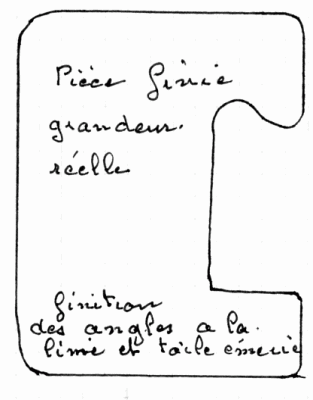 Pièce finie
grandeur.
réelle
finition
des angles a la.
lime et toile émerie